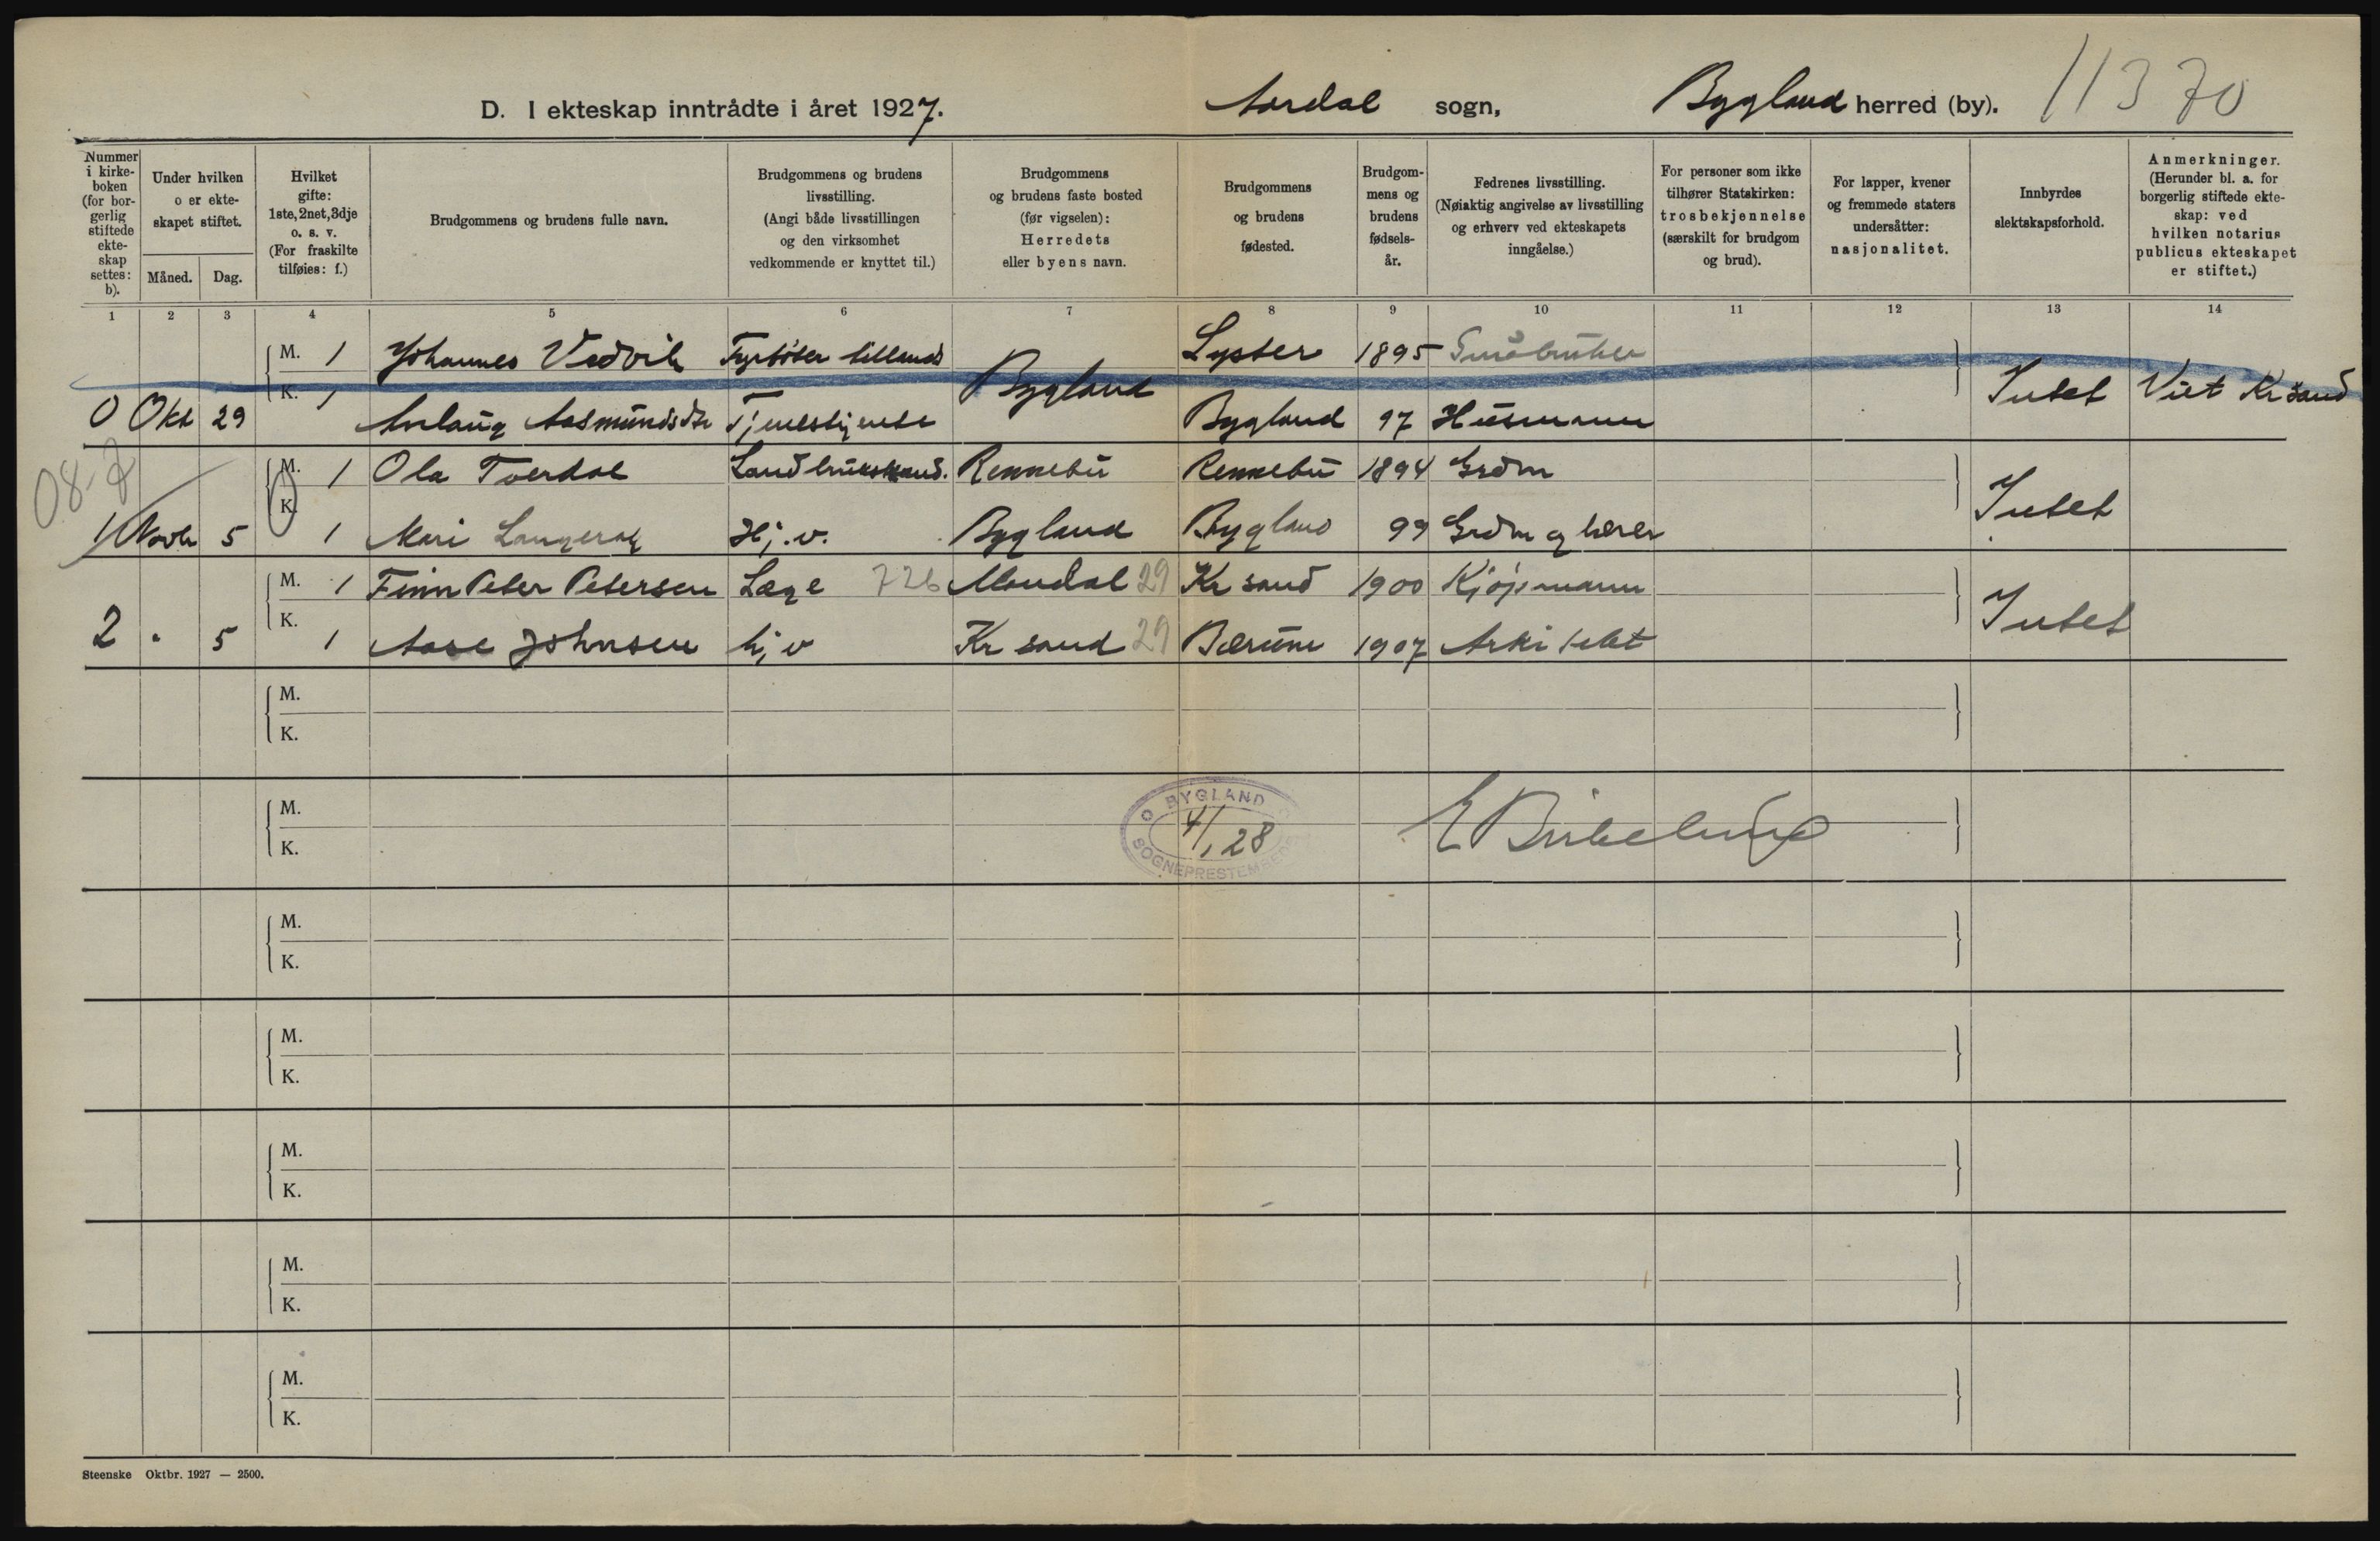 D. I ekteskap inntrådte i året 1927. Aardal sogn, Bygland herred (by). 11370
Nummer i kirkeboken (for borgerlig stiftede ekteskap settes: b).
Under hvilken o er ekteskapet stiftet.
Måned. Dag.
Hvilket gifte: 1ste, 2net, 3dje o. s. v. (For fraskilte tilføies: f.)
Brudgommens og brudens fulle navn.
Brudgommens og brudens livsstilling. (Angi både livsstillingen og den virksomhet vedkommende er knyttet til.)
Brudgommens og brudens faste bosted (før vigselen): Herredets eller byens navn.
Brudgommens og brudens fødested.
Brudgommens og brudens fødselsår.
Fedrenes livsstilling. (Nøiaktig angivelse av livsstilling og erhverv ved ekteskapets inngåelse.)
For personer som ikke tilhører Statskirken: trosbekjennelse (særskilt for brudgom og brud).
For lapper, kvener og fremmede staters undersåtter: nasjonalitet.
Innbyrdes slektskapsforhold.
Anmerkninger. (Herunder bl. a. for borgerlig stiftede ekteskap: ved hvilken notarius publicus ekteskapet er stiftet.)
1 2 3 4 5 6 7 8 9 10 11 12 13 14
M. 1 Johannes Vedvik Fyrbøter Lyster 1895 Småbruker
0 Okt 29 K. 1 Aslaug Aasmundsdtr Tjenestjente Bygland Bygland 97 Husmann Intet Viet Kr sand
08-7
M. 1 Ola Tverdal Rennebu Rennebu 1894 Grdm
1 Novb 5 K. 1 Mari Langerak Hj. v. Bygland Bygland 99 Grdm og lærer Intet
M. 1 Finn Peter Petersen Læge 726 Mandal 29 Kr sand 1900 Kjøpmann
2 " 5 K. 1 Aase Johnsen hj v Kr sand 29 Bærum 1907 Arkitekt Intet
M.
K.
M.
K.
BYGLAND SOGNEPRESTEMBEDE
4/1 28
E Birkelund
M.
K.
M.
K.
M.
K.
M.
K.
M.
K.
Steenske Oktbr. 1927 — 2500.